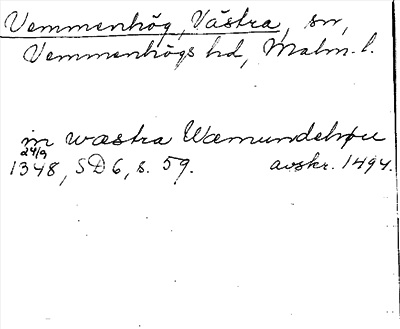 Vemmenhög, Västra, sn,
Vemmenhögs hd, Malm. l.
in wæstra Wæmundehøu
24/9
1348, SD 6, s. 59. avskr. 1494.